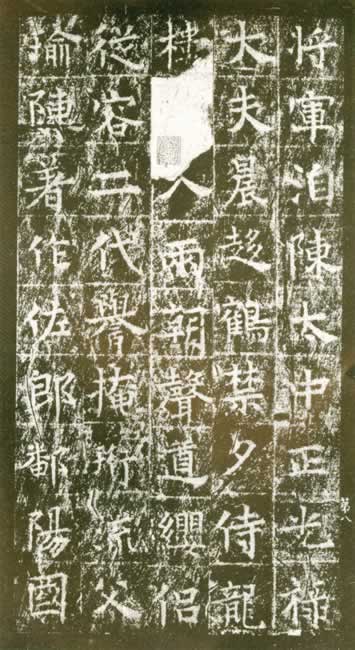 將軍洎陳太中正光祿
大夫晨趍鶴禁夕侍龍
入兩朝聲道纓侶
從容二代譽掩珩流父
揄陳著作佐郎鄱陽酋